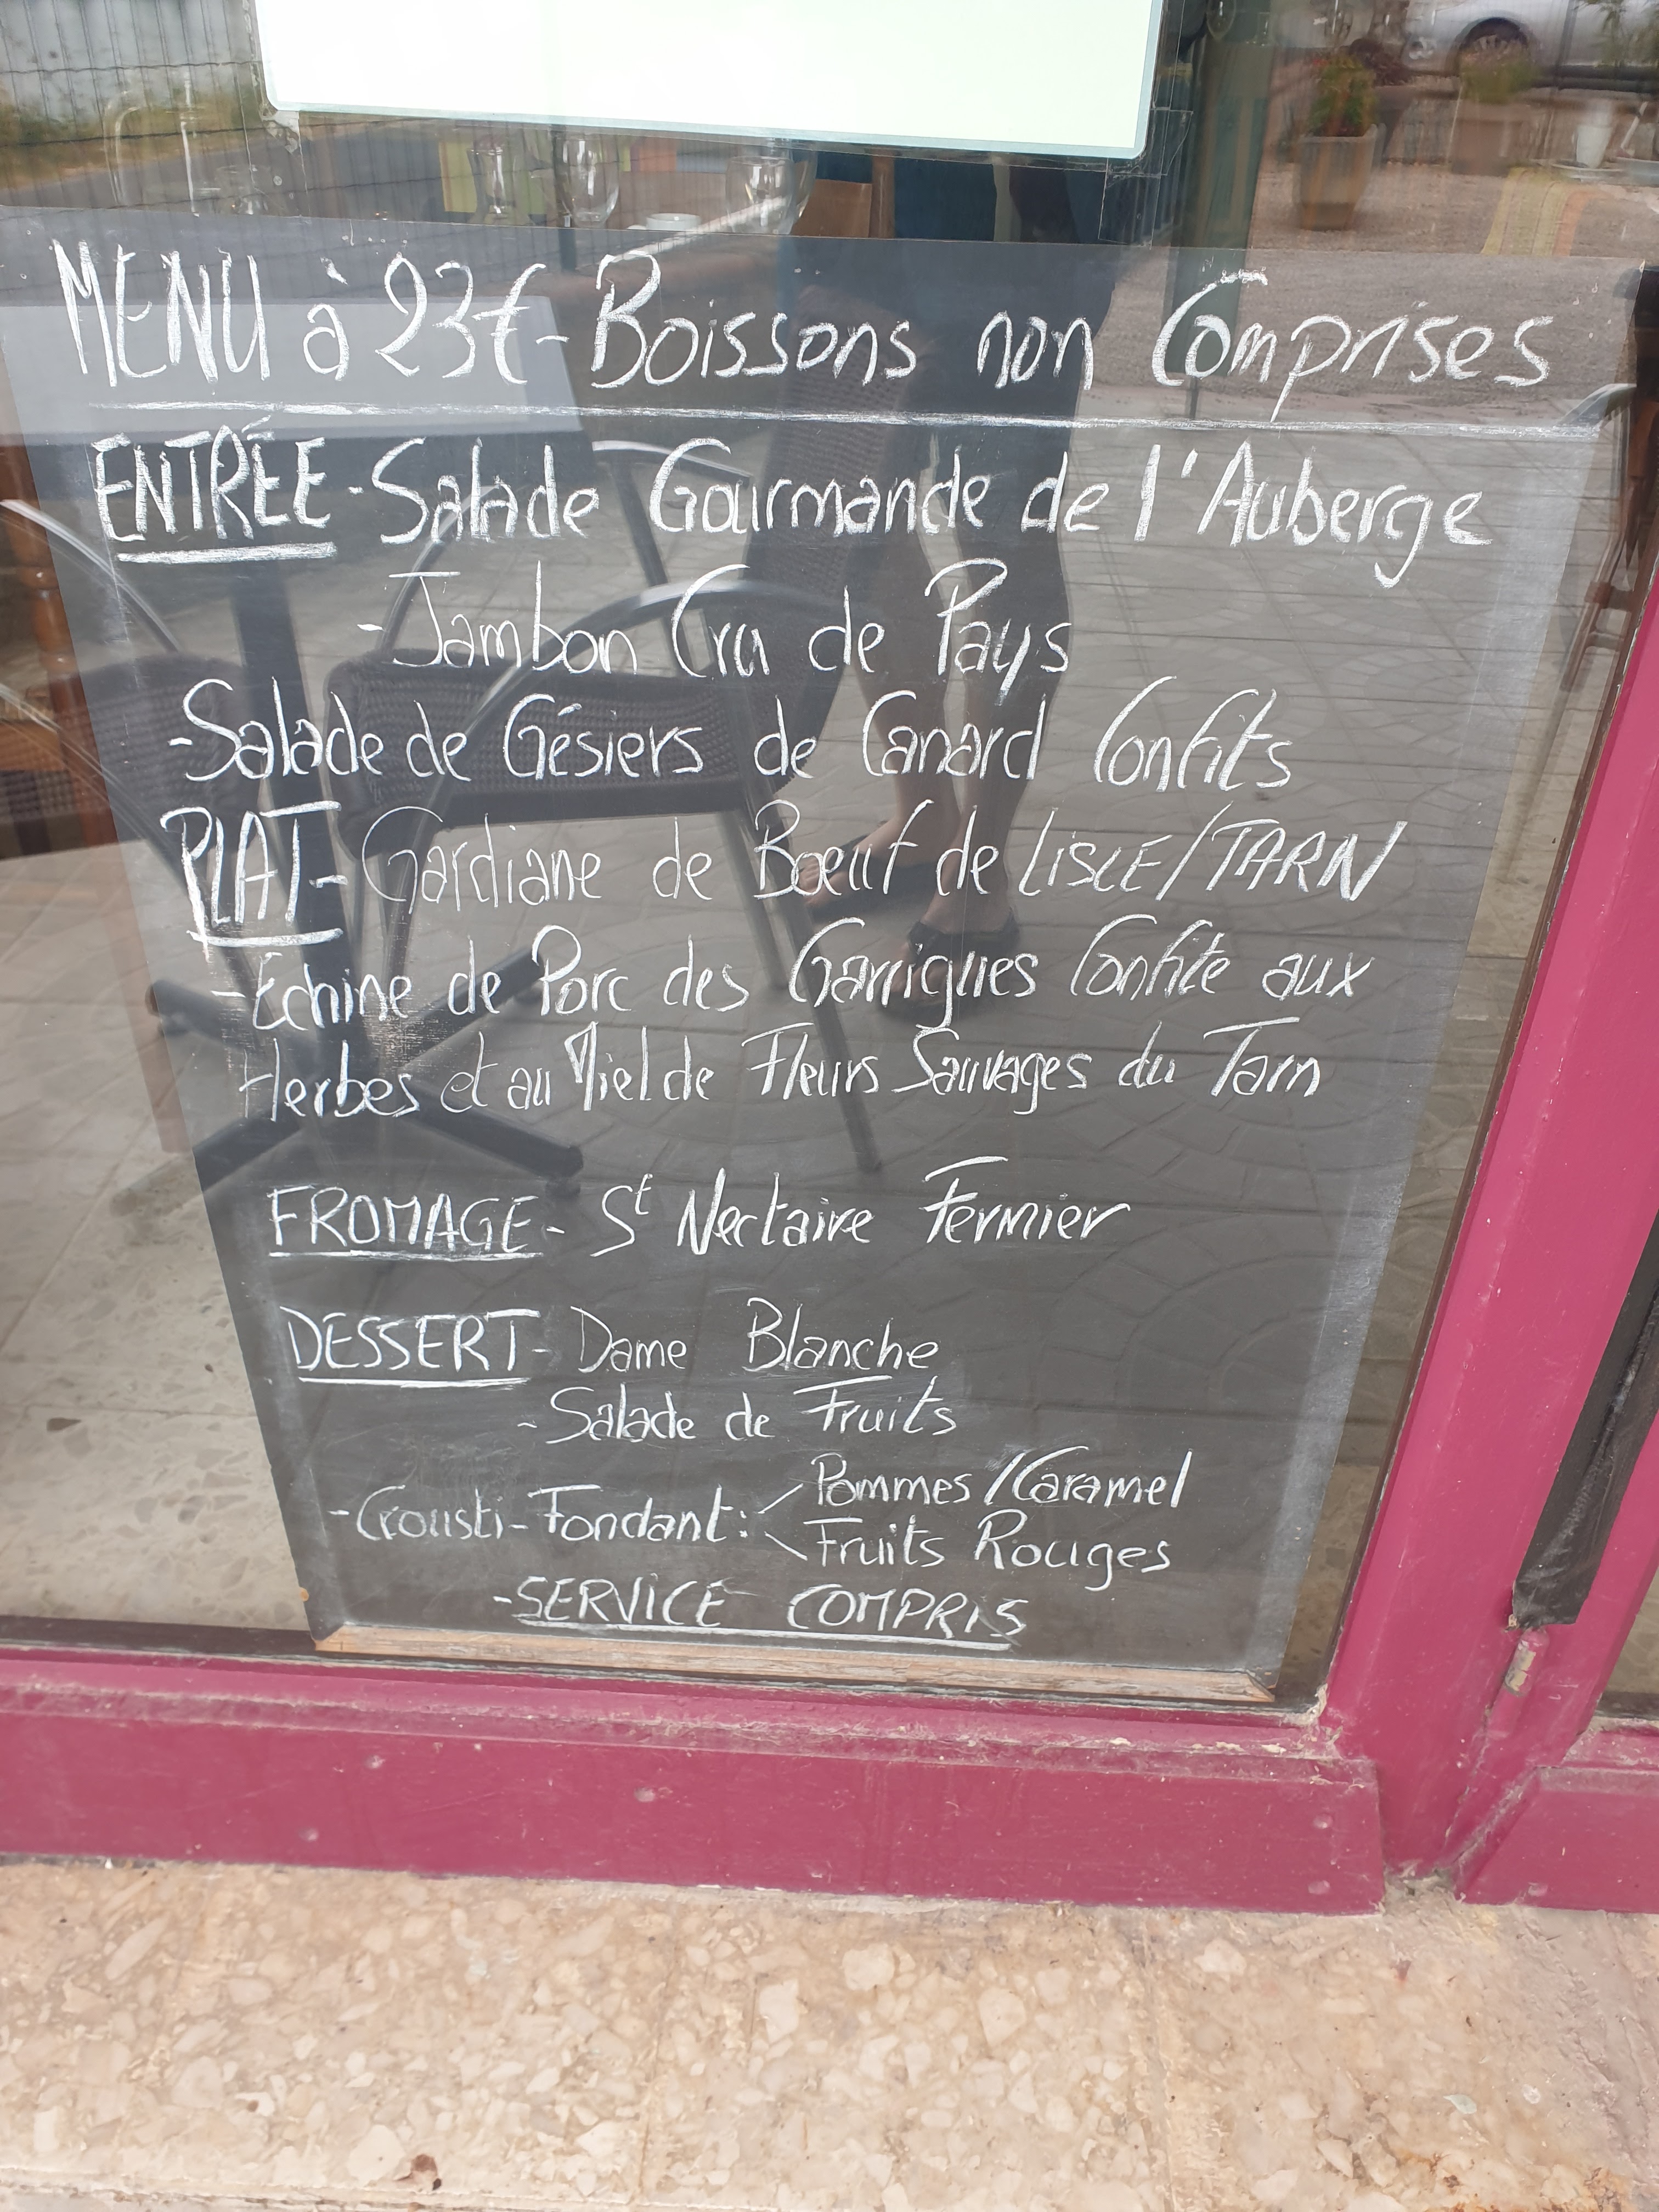 MENU à 23€ - Boissons non Comprises
ENTRÉE - Salade Gourmande de l'Auberge
- Jambon Cru de Pays
- Salade de Gésiers de Canard Confits
PLAT - Gardiane de Bœuf de LISLE/TARN
- Echine de Porc des Garrigues Confite aux
Herbes et au Miel de Fleurs Sauvages du Tarn
FROMAGE - St Nectaire Fermier
DESSERT - Dame Blanche
- Salade de Fruits
- Crousti-Fondant : Pommes/Caramel
Fruits Rouges
- SERVICE COMPRIS